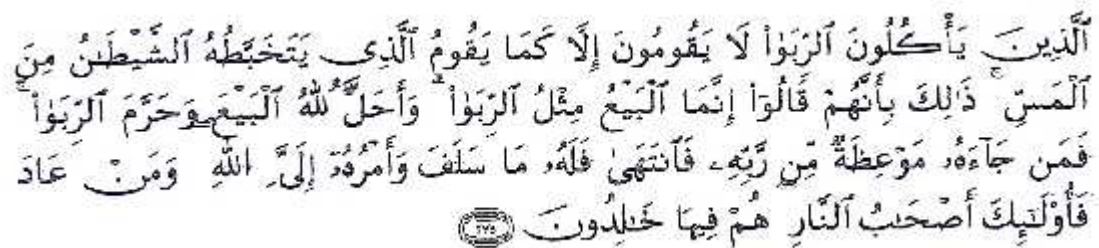 ٱلَّذِينَ يَأْكُلُونَ ٱلرِّبَوٰا۟ لَا يَقُومُونَ إِلَّا كَمَا يَقُومُ ٱلَّذِى يَتَخَبَّطُهُ ٱلشَّيْطَٰنُ مِنَ
ٱلْمَسِّ ۚ ذَٰلِكَ بِأَنَّهُمْ قَالُوٓا۟ إِنَّمَا ٱلْبَيْعُ مِثْلُ ٱلرِّبَوٰا۟ ۗ وَأَحَلَّ ٱللَّهُ ٱلْبَيْعَ وَحَرَّمَ ٱلرِّبَوٰا۟ ۚ
فَمَن جَآءَهُۥ مَوْعِظَةٌ مِّن رَّبِّهِۦ فَٱنتَهَىٰ فَلَهُۥ مَا سَلَفَ وَأَمْرُهُۥٓ إِلَى ٱللَّهِ وَمَنْ عَادَ
فَأُو۟لَٰٓئِكَ أَصْحَٰبُ ٱلنَّارِ هُمْ فِيهَا خَٰلِدُونَ ٢٧٥